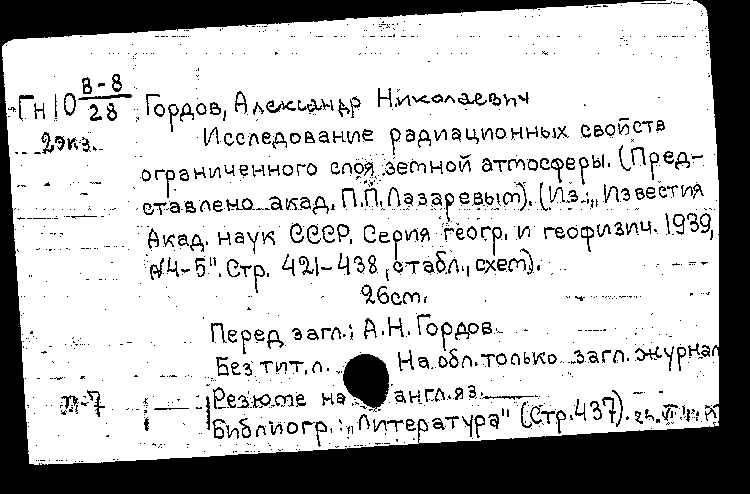 Гн10 В-8/28 Гордов, Александр Николаевич
2экз. Исследование радиационных свойств
ограниченного слоя земной атмосферы. (Пред-
ставлено акад. П.П.Лазаревым). (Из: „Известия
Акад. наук СССР. Серия геогр. и геофизич. 1939,
№4-5". Стр. 421-438, с табл., схем).
26cm.
Перед загл.: А.Н.Гордов.
Без тит.л. На обл. только загл. журнал
Резюме на англ.яз.
Библиогр.: „Литература" (Стр.437).